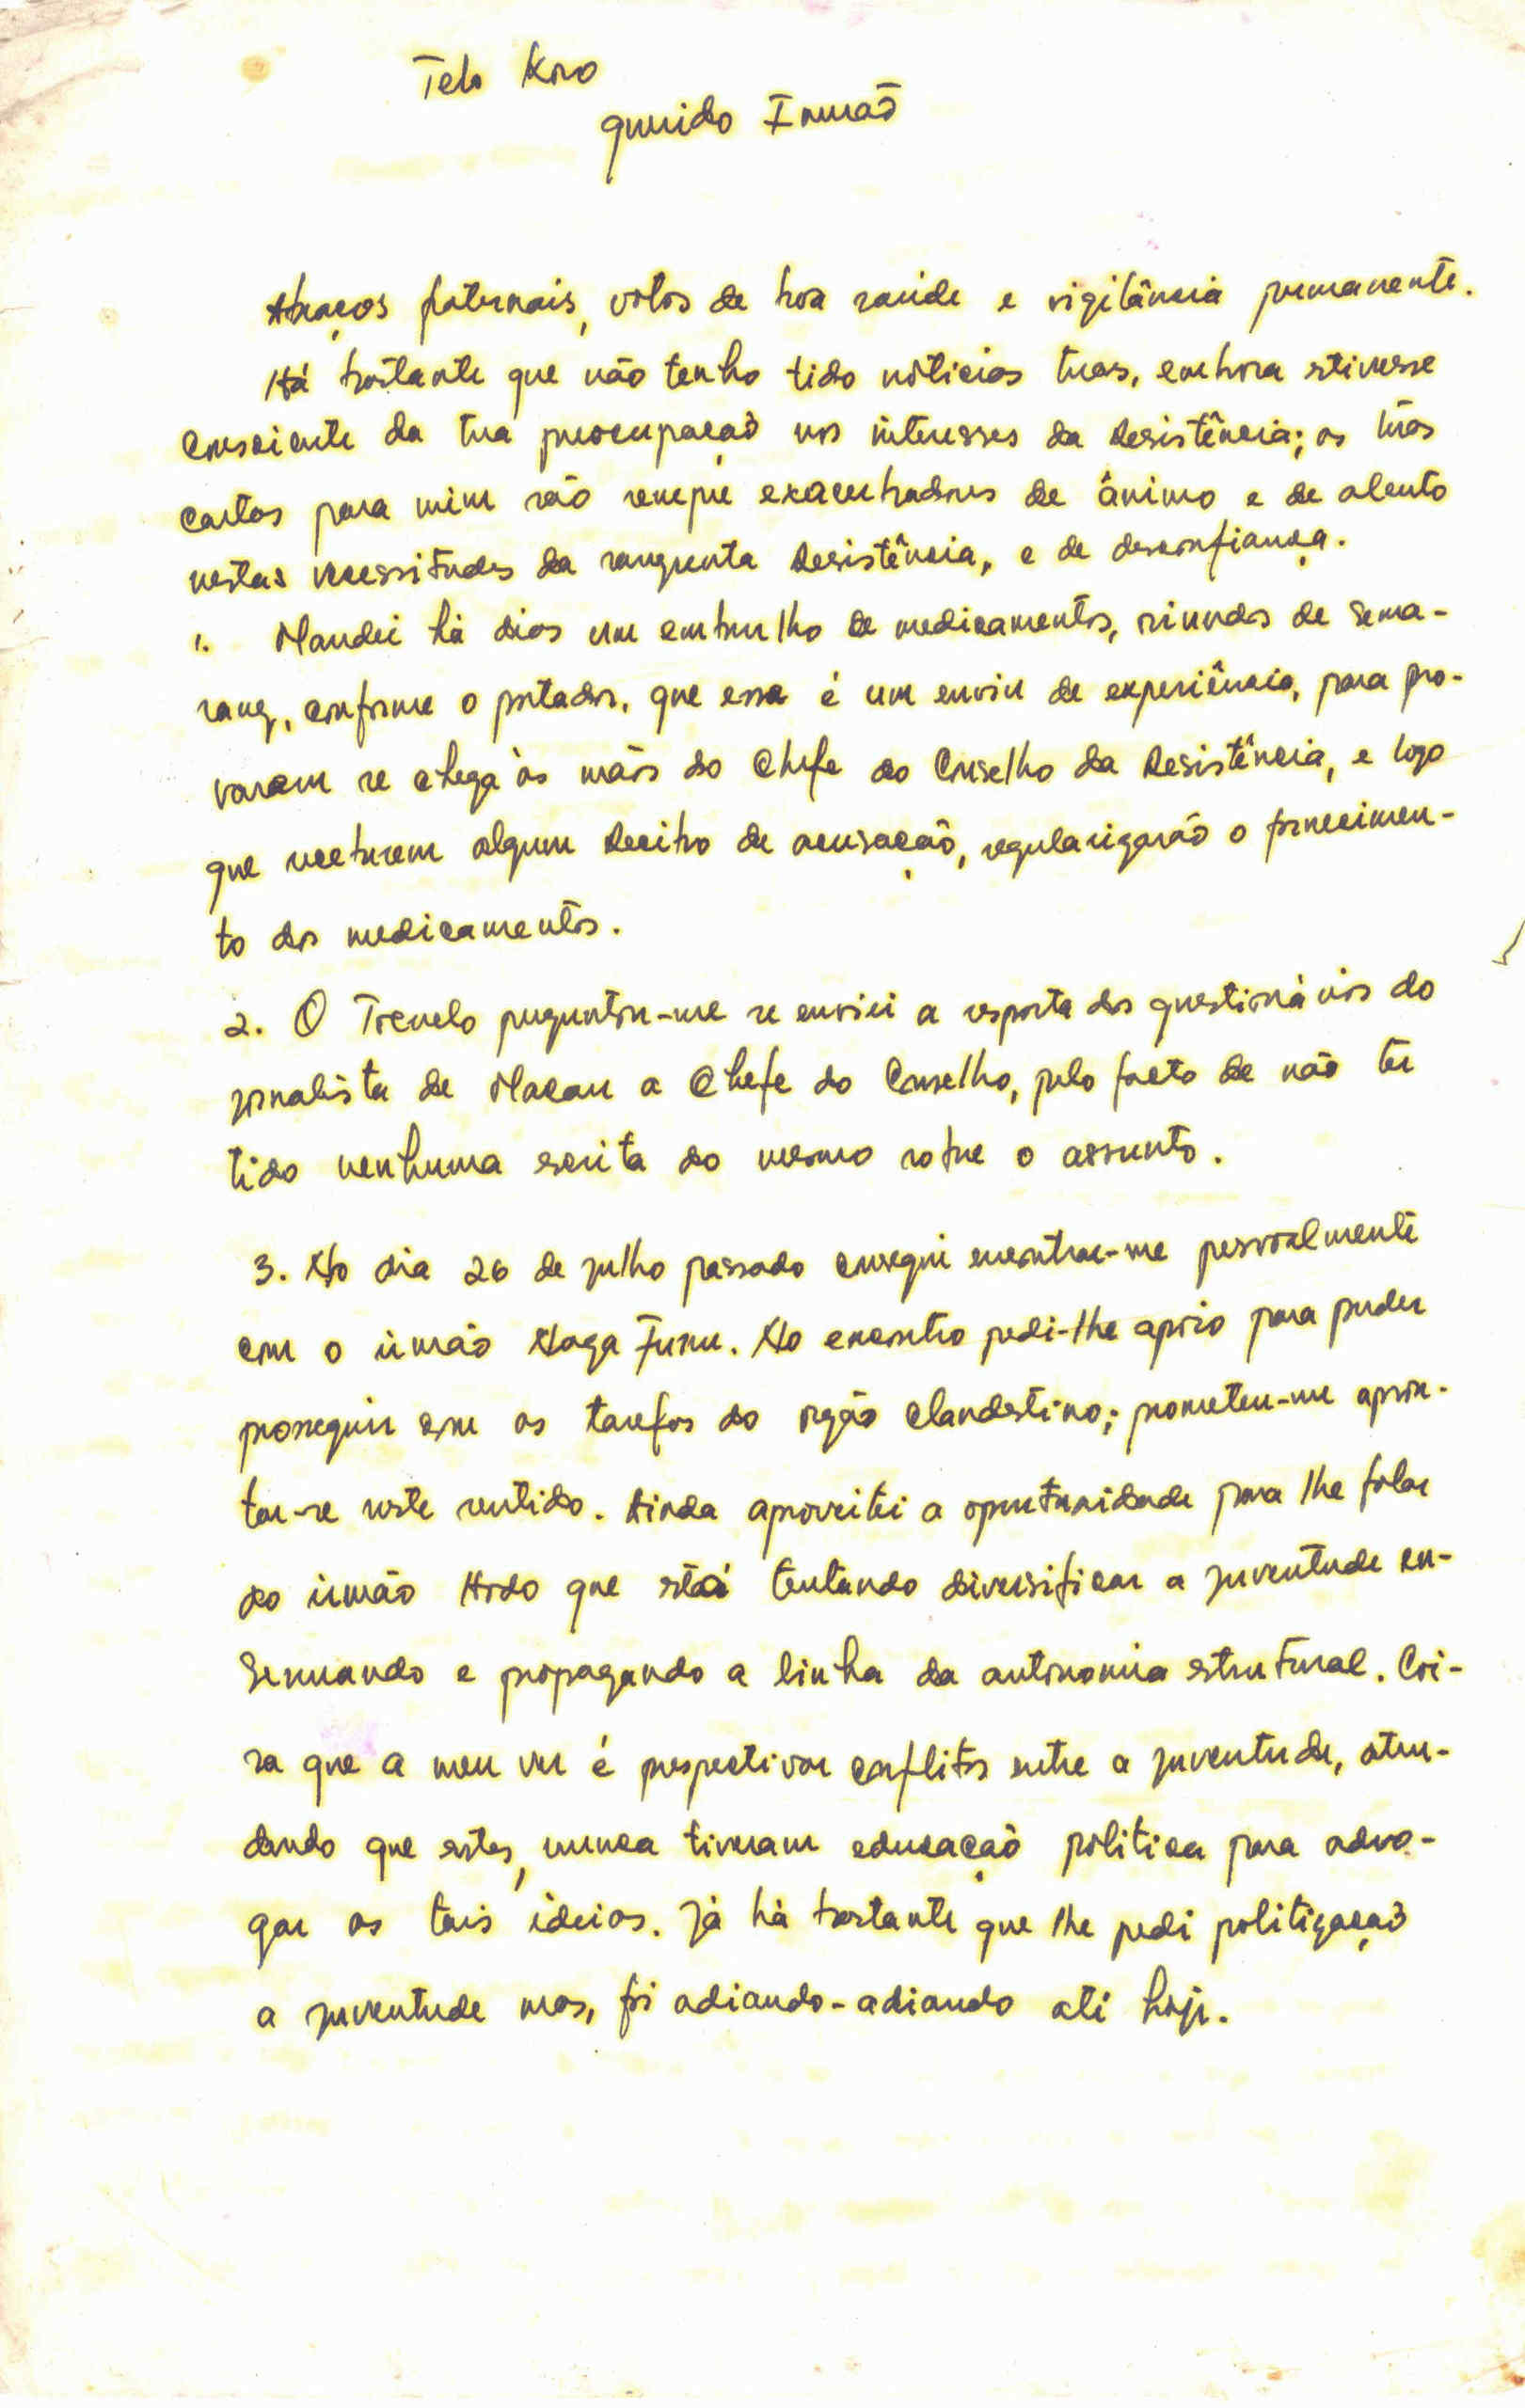 Telo Kro
querido Irmaõ
Abraços fraternais, votos de boa saúde e vigilância permanente.
Há bastante que não tenho tido nóticias tuas, embora estivesse
consciente da tua preocupaçaõ nos interesses da Resistência; as tuas
cartas para mim são sempre exacerbadores de ânimo e de alento
nestas vecessitudes da sangrenta Resistência, e de desconfiança.
1. Mandei há dias um embrulho de medicamentos, oriundos de Sema-
rang, conforme o portador, que essa é um envio de experiência, para pro-
varem se chega às mãos do Chefe do Conselho da Resistência, e logo
que receberem algum Recibo de acusação, regularizarão o fornecimen-
to dos medicamentos.
2. O perguntou-me se enviei a resposta dos questionários do
jornalista de Macau a Chefe do Conselho, pelo facto de não ter
tido nenhuma escrita do mesmo sobre o assunto.
3. No dia 26 de julho passado consegui encontrar-me pessoalmente
com o irmão Naga Funu. No encontro pedi-lhe apoio para puder
prosseguir com as tarefas do orgão clandestino; prometeu-me apron-
tar-se neste sentido. Ainda aproveitei a oportunidade para lhe falar
do irmão Hodo que está tentando diversificar a juventude en-
semuando e propagando a linha da autonomia estrutural. Coi-
sa que a meu ver é prespectivar conflitos entre a juventude, aten-
dendo que estes, nunca tiveram educaçaõ política para advo-
gar as tais ideias. Já há bastante que lhe pedi politizaçaõ
a juventude mas, foi adiando-adiando até hoje.